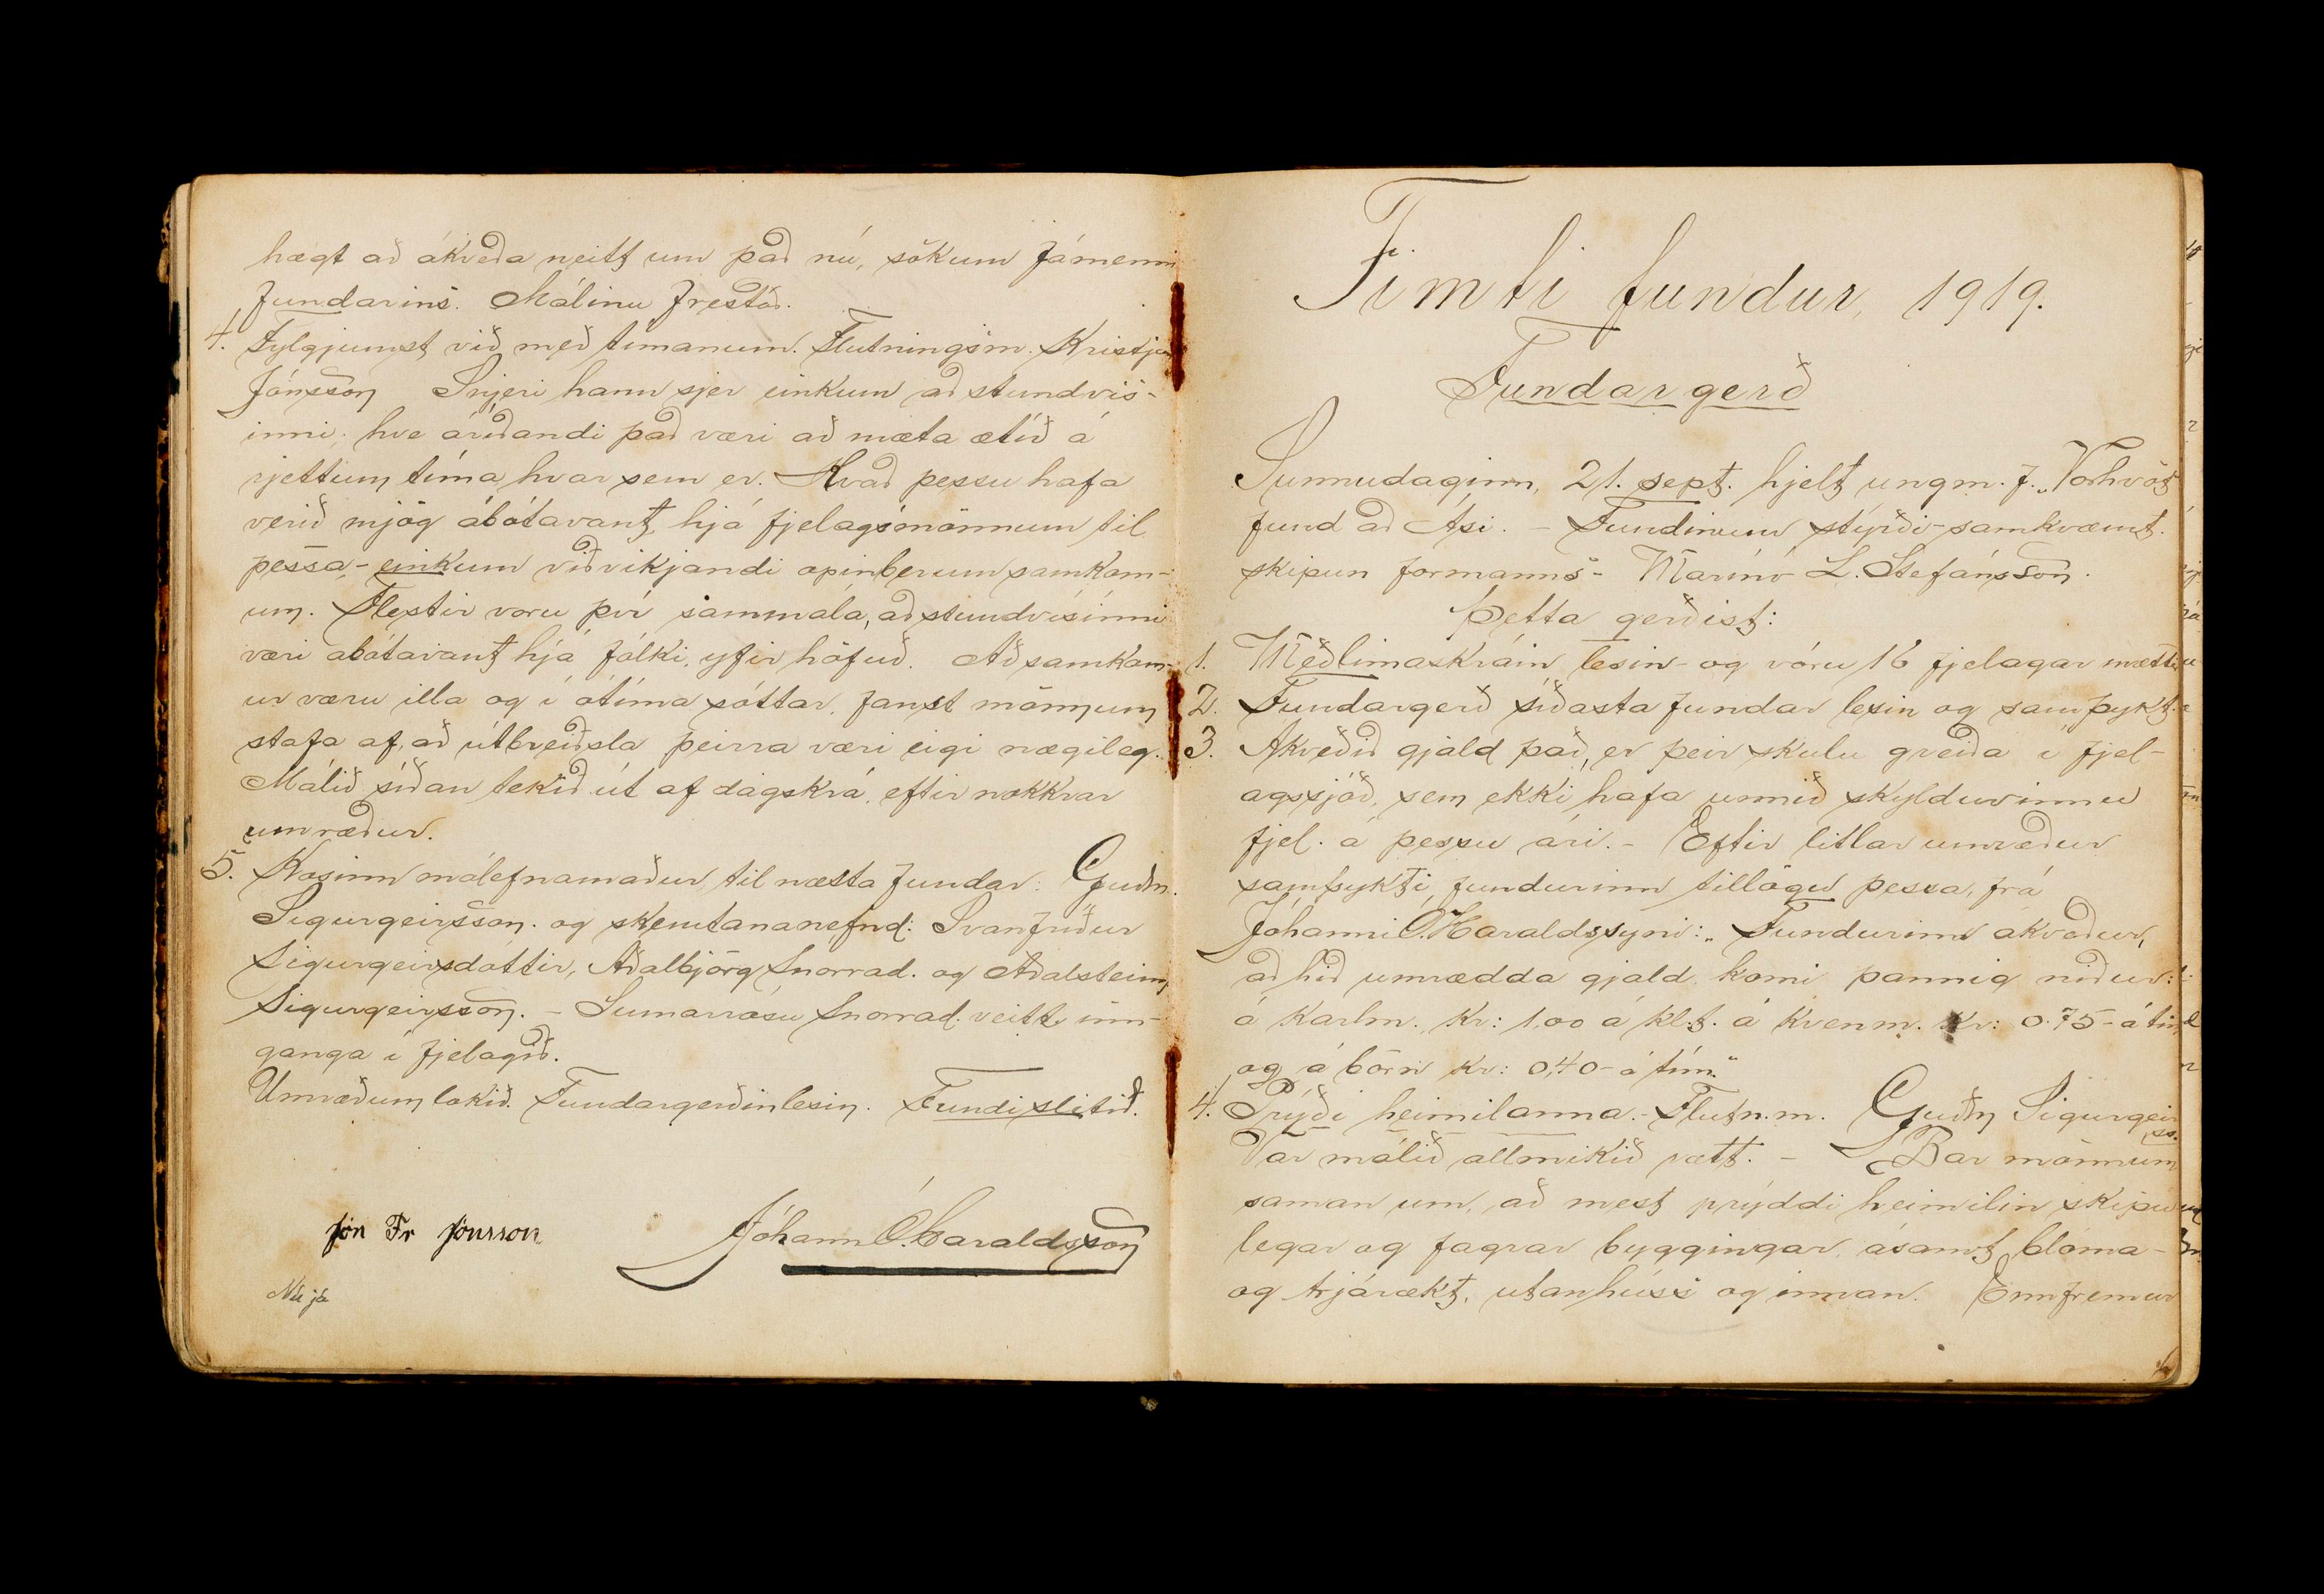 hægt að ákveða neitt um það nú, sökum fámenni
fundarins. Málinu frestað.
4. Fylgjumst við með tímanum. Flutningsm. Kristján
Jónsson Snjeri hann sjer einkum að stundvís-
inni, hve áríðandi það væri að mæta ætíð á
rjettum tíma, hvar sem er. Kvað þessu hafa
verið mjög ábótavant, hjá fjelagsmönnum til
þessa - einkum viðvíkjandi opinberum samkom-
um. Flestir voru því sammála, að stundvísinni
væri abótavant hjá fólki, yfir höfuð. Að samkom-
ur væru illa og í ótíma sóttar, fanst mönnum
stafa af, að útbreiðsla þeirra væri eigi nægileg.
Málið síðan tekið út af dagskrá, eftir nokkrar
umræður.
5. Kosinn málefnamaður, til næsta fundar: Guðm.
Sigurgeirsson. og skemtananefnd: Svanfríður
Sigurgeirsdóttir, Aðalbjörg Snorrad. og Aðalsteinn
Sigurgeirsson. - Sumarrósu Snorrad. veitt inn-
ganga í fjelagið.
Umræðum lokið. Fundargerðin lesin. Fundi slitið.
Jón Fr Jónsson Jóhann Ó. Haraldsson
Nú já
Fimti fundur, 1919.
Fundargerð
Sunnudaginn, 21. sept. hjelt ungm. f. „Vorhvöt
fund að Ási. - Fundinum stýrði - samkvæmt.
skipun formanns - Marinó L. Stefánsson.
Þetta gerðist:
1. Meðlimaskráin lesin - og vóru 16 fjelagar mættir
2. Fundargerð síðasta fundar lesin og samþykt.
3. Akveðið gjald það, er þeir skulu greiða í fjel-
agssjóð, sem ekki hafa unnið skylduvinnu
fjel. á þessu ári. - Eftir litlar umræður
samþykti fundurinn tillögu þessa, frá
Jóhanni Ó. Haraldssyni: „Fundurinn ákveður,
að hið umrædda gjald, komi þannig niður:
á karlm. Kr: 1,00 á kl.t. á kvenm. Kr: 0.75 - á tím
og á börn kr: 0,40 - á tím."
4. Prýði heimilanna. - Flutn.m. Guðm Sigurgeirss.
Var málið allmikið rætt. - Bar mönnum
saman um, að mest prýddi heimilin skipu
legar og fagrar byggingar, ásamt blóma-
og trjárækt, utanhúss og innan. Ennfremur